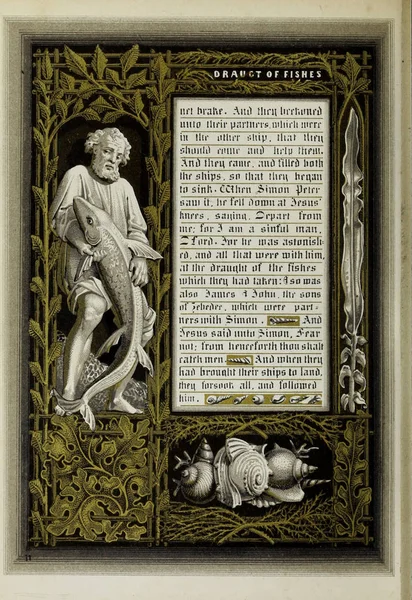 DRAUGT OF FISHES
net brake. And they beckoned
unto their partners, which were
in the other ship, that they
should come and help them.
And they came, and filled both
the ships, so that they began
to sink. When Simon Peter
saw it, he fell down at Jesus'
knees, saying, Depart from
me; for I am a sinful man,
O Lord. For he was astonish-
ed, and all that were with him,
at the draught of the fishes
which they had taken: & so was
also James & John, the sons
of Zebedee, which were part-
ners with Simon. And
Jesus said unto Simon, Fear
not; from henceforth thou shalt
catch men. And when they
had brought their ships to land,
they forsook all, and followed
him.
11